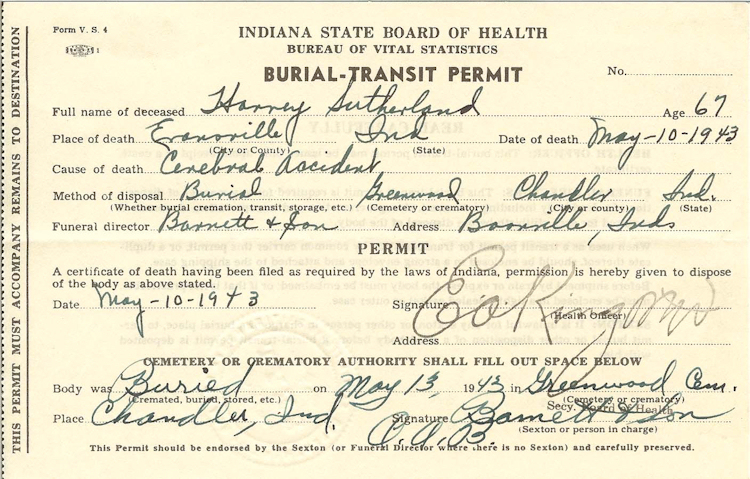 Form V. S. 4
INDIANA STATE BOARD OF HEALTH
BUREAU OF VITAL STATISTICS
BURIAL-TRANSIT PERMIT
No.
Full name of deceased Harvey Sutherland Age 67
Place of death Evansville Ind Date of death May-10-1943
(City or County) (State)
Cause of death Cerebral Accident
Method of disposal Burial Greenwood Chandler Ind.
(Whether burial cremation, transit, storage, etc.) (Cemetery or crematory) (City or county) (State)
Funeral director Barnett & Son Address Boonville, Ind
PERMIT
A certificate of death having been filed as required by the laws of Indiana, permission is hereby given to dispose
of the body as above stated.
Date May-10-1943 Signature
(Health Officer)
Address
CEMETERY OR CREMATORY AUTHORITY SHALL FILL OUT SPACE BELOW
Body was Buried on May 13, 1943 in Greenwood Cem.
(Cremated, buried, stored, etc.) (Cemetery or crematory)
Secy. Board of Health
Place Chandler, Ind. Signature Barnett & Son
(Sexton or person in charge)
This Permit should be endorsed by the Sexton (or Funeral Director where there is no Sexton) and carefully preserved.
THIS PERMIT MUST ACCOMPANY REMAINS TO DESTINATION